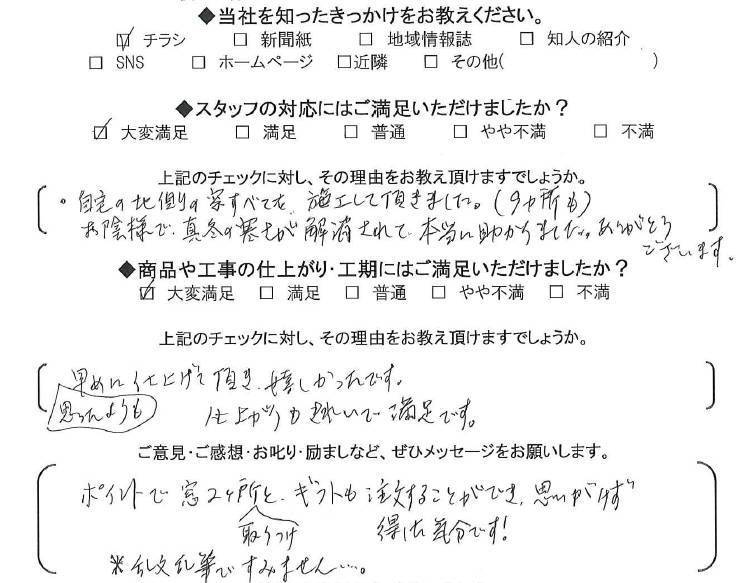 ◆当社を知ったきっかけをお教えください。
☑ チラシ □ 新聞紙 □ 地域情報誌 □ 知人の紹介
□ SNS □ ホームページ □近隣 □ その他( )
◆スタッフの対応にはご満足いただけましたか？
☑ 大変満足 □ 満足 □ 普通 □ やや不満 □ 不満
上記のチェックに対し、その理由をお教え頂けますでしょうか。
・自宅の北側の窓すべてを、施工して頂きました。(9ヵ所も)
お陰様で、真冬の寒さが解消されて、本当に助かりました。ありがとう
ございます。
◆商品や工事の仕上がり・工期にはご満足いただけましたか？
☑ 大変満足 □ 満足 □ 普通 □ やや不満 □ 不満
上記のチェックに対し、その理由をお教え頂けますでしょうか。
早めに仕上げて頂き、嬉しかったです。
思ったよりも 仕上がりもきれいで満足です。
ご意見・ご感想・お叱り・励ましなど、ぜひメッセージをお願いします。
ポイントで窓2ヶ所と、ギフトも注文することができ、思いがけず
取りつけ 得した気分です!
※乱文乱筆ですみません…。